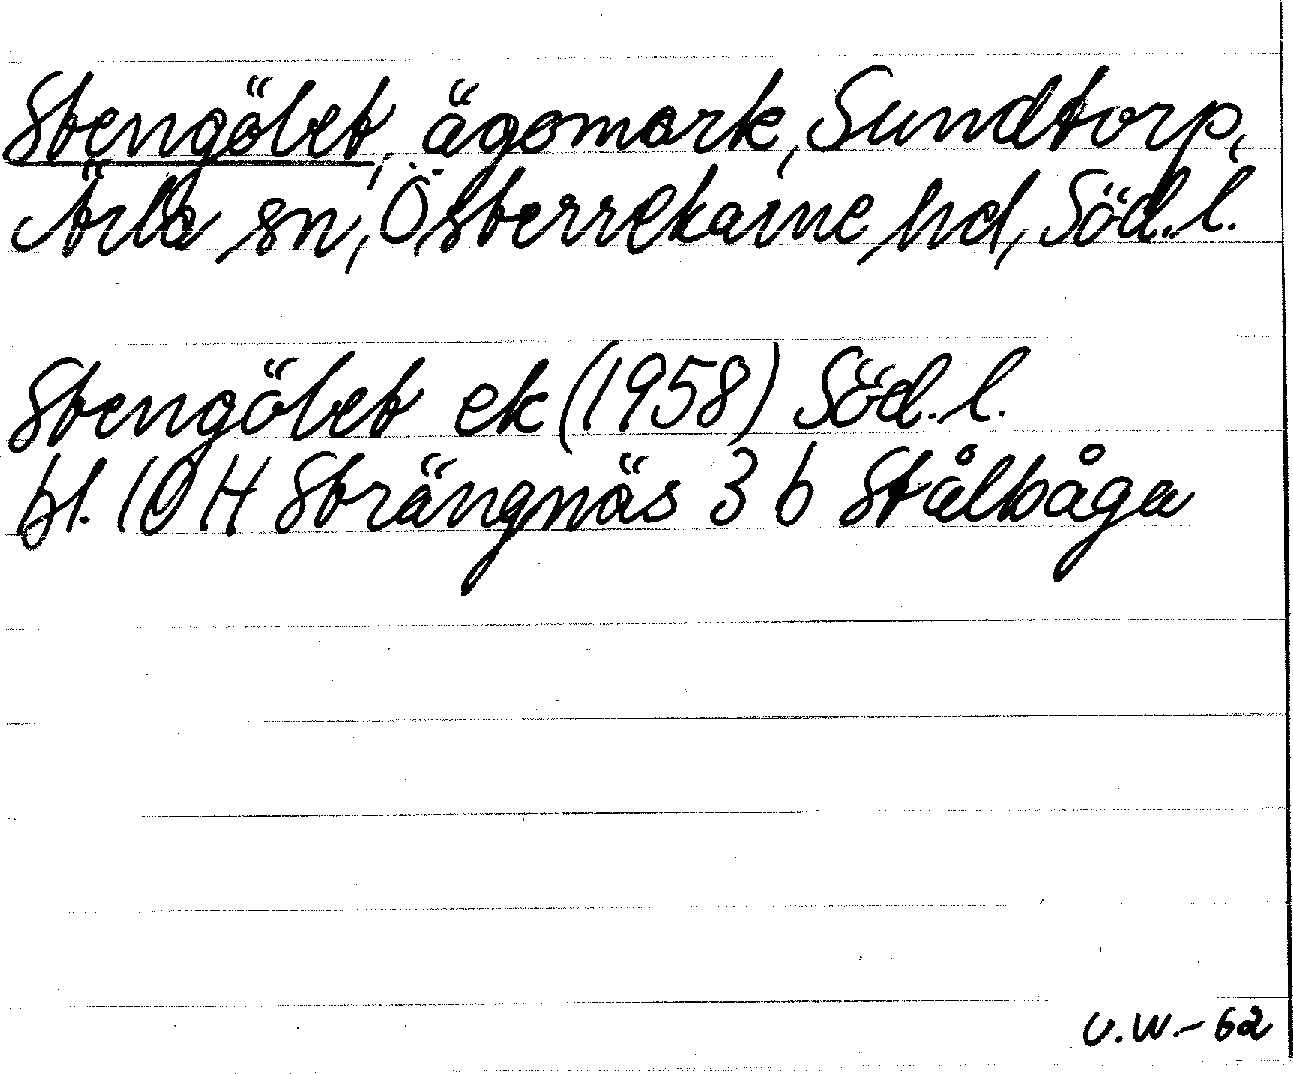 Stengölet, ägomark, Sundtorp,
Ärla sn, Österrekarne hd, Söd.l.
Stengölet ek (1958) Söd.l.
bl. 10 H Strängnäs 3 b Stålbåga
U.W.-62